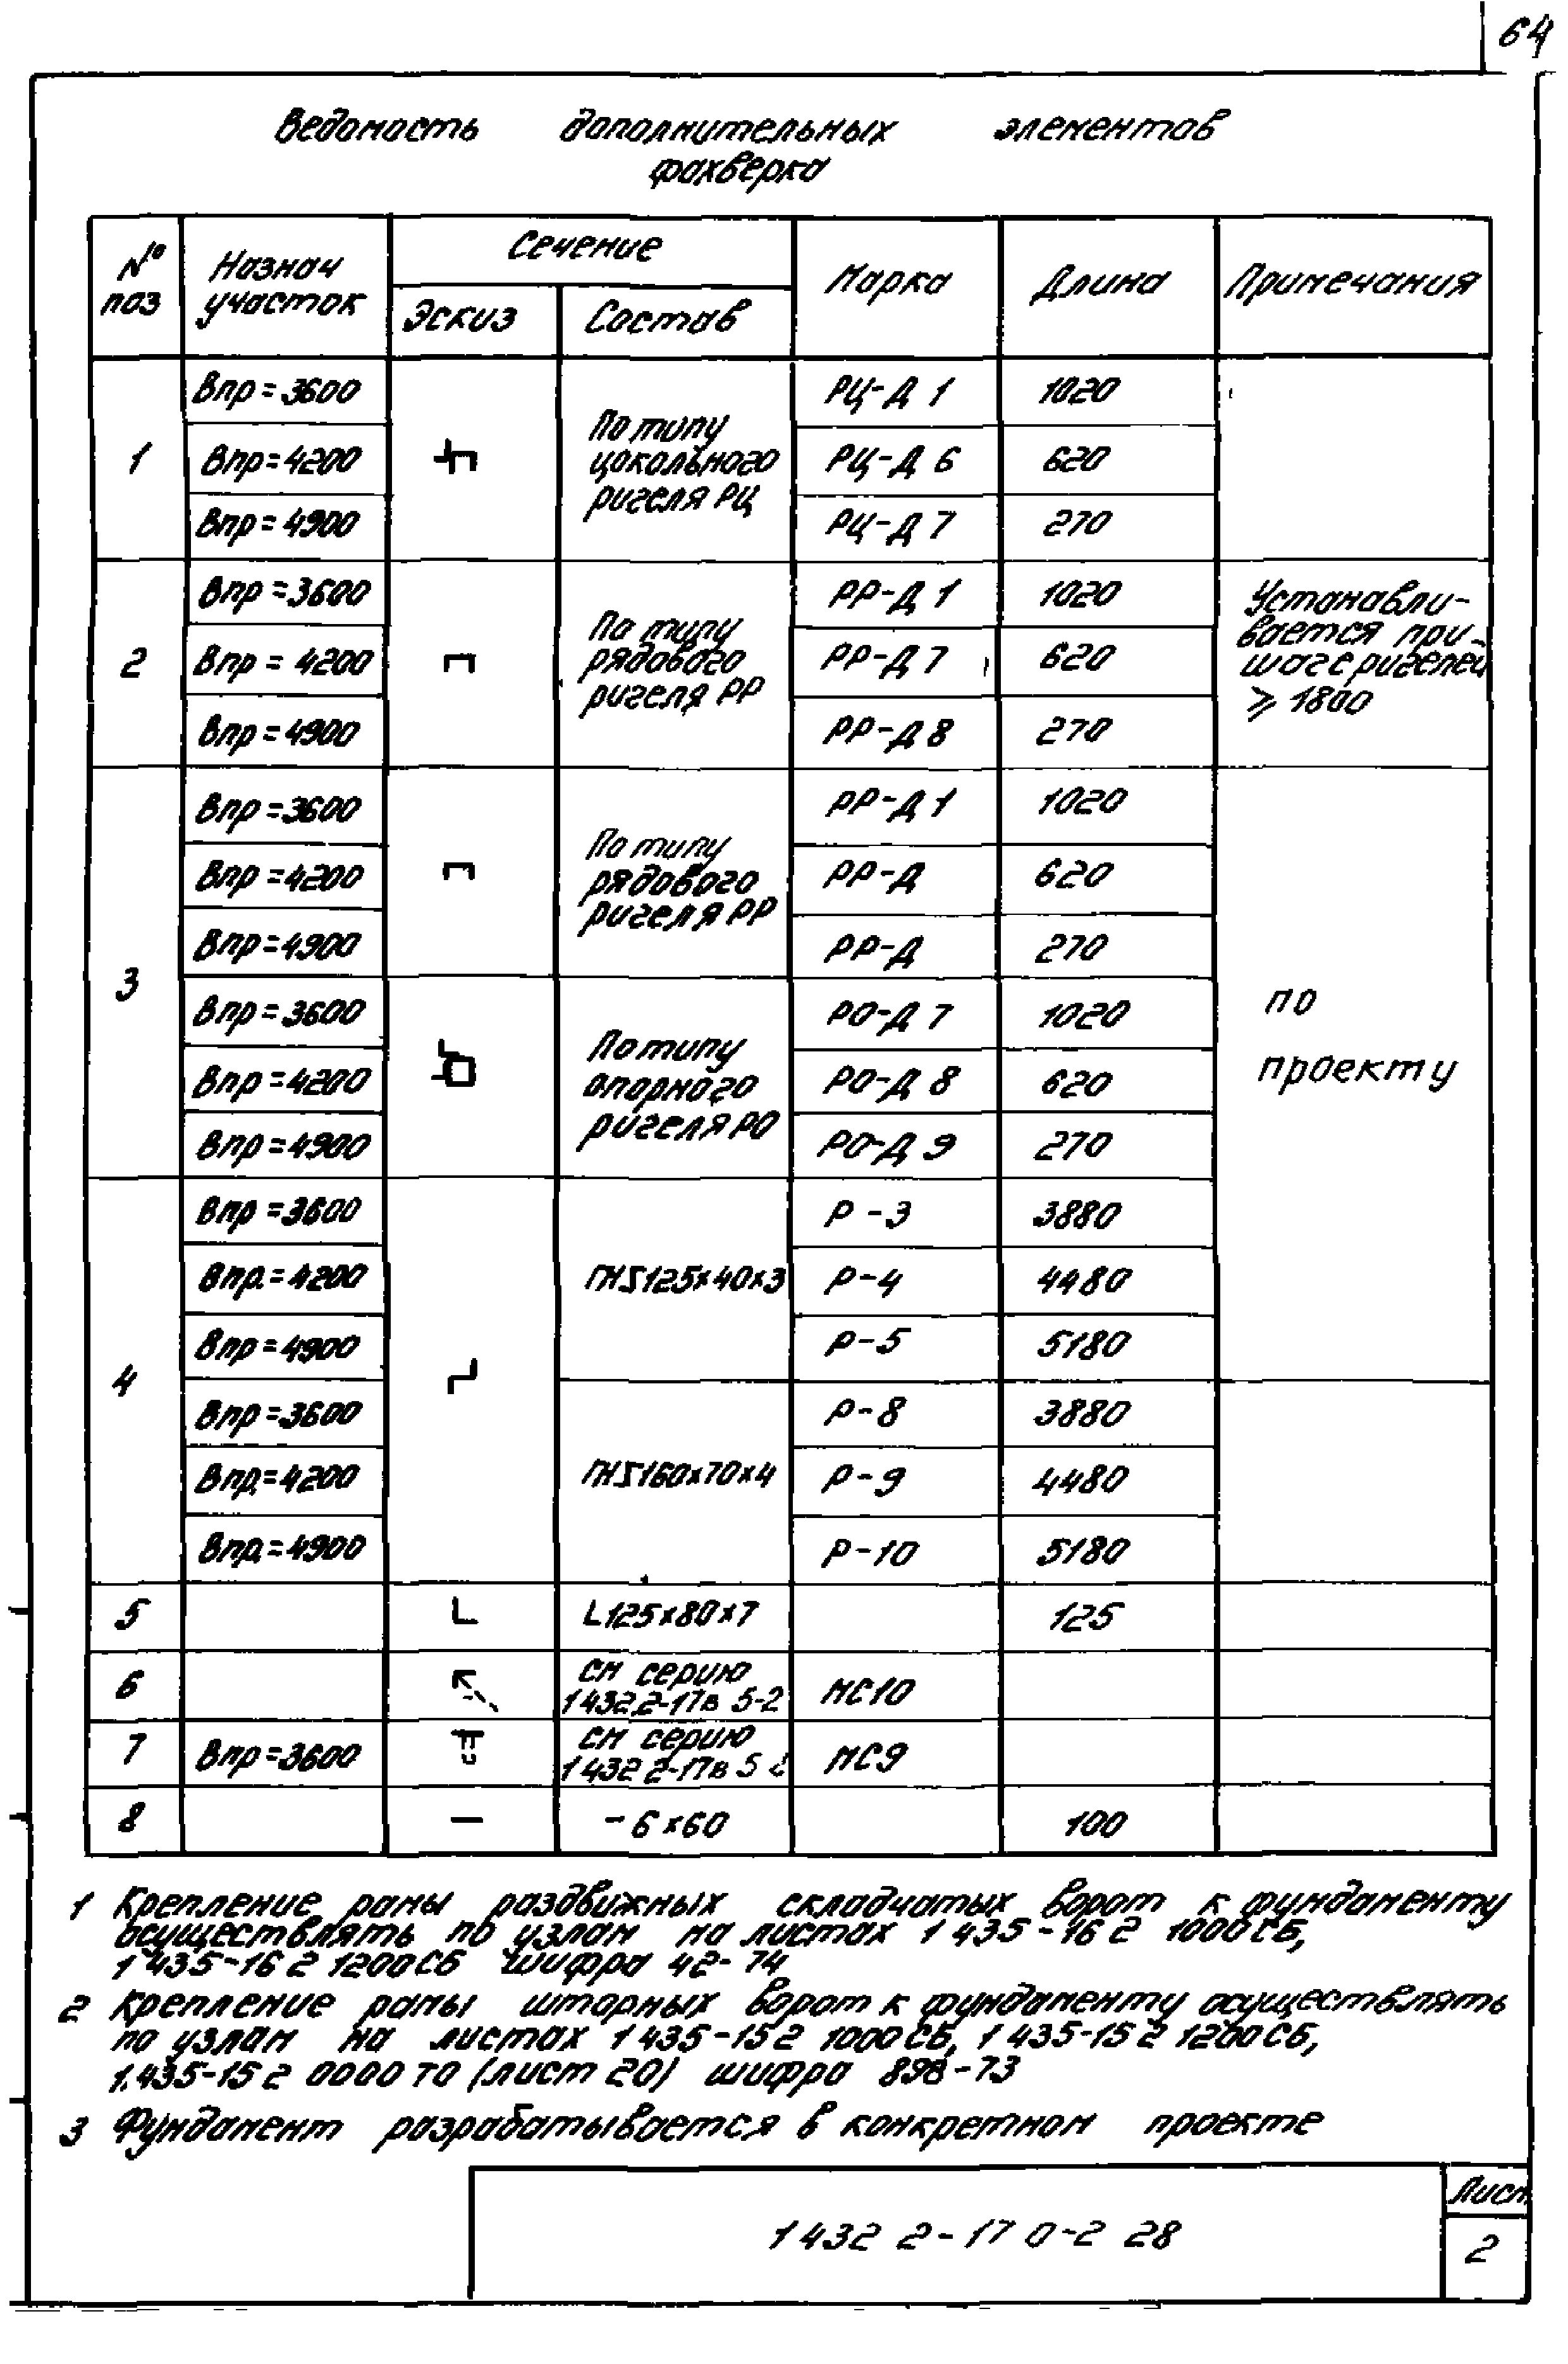 64
Ведомость дополнительных элементов
фахверка
№ поз
Назнач участок
Сечение
Эскиз
Состав
Марка
Длина
Примечания
1
Впр=3600
По типу цокольного ригеля РЦ
РЦ-Д 1
1020
Впр=4200
РЦ-Д 6
620
Впр=4900
РЦ-Д 7
270
2
Впр=3600
По типу рядового ригеля РР
РР-Д 1
1020
Устанавли-
вается при
шаге ригелей
⩾ 1800
Впр=4200
РР-Д 7
620
Впр=4900
РР-Д 8
270
3
Впр=3600
По типу рядового ригеля РР
РР-Д 1
1020
Впр=4200
РР-Д
620
Впр=4900
РР-Д
270
по
проекту
Впр=3600
По типу опорного ригеля РО
РО-Д 7
1020
Впр=4200
РО-Д 8
620
Впр=4900
РО-Д 9
270
4
Впр=3600
125×40×3
Р-3
3880
Впр.=4200
Р-4
4480
Впр=4900
Р-5
5180
Впр=3600
160×70×4
Р-8
3880
Впр.=4200
Р-9
4480
Впр.=4900
Р-10
5180
5
L125×80×7
125
6
см серию
1 432.2-17в 5-2
МС10
7
Впр=3600
см серию
1 432 2-17в 5
МС9
8
-6×60
100
1 Крепление рамы раздвижных складчатых ворот к фундаменту
осуществлять по узлам на листах 1 435-16 2 1000СБ,
1 435-16 2 1200СБ шифра 42-74
2 Крепление рамы шторных ворот к фундаменту осуществлять
по узлам на листах 1 435-15 2 1000СБ, 1 435-15 2 1200СБ,
1.435-15 2 0000 ТО (лист 20) шифра 898-73
3 Фундамент разрабатывается в конкретном проекте
1 432 2-17 0-2 28
Лист
2